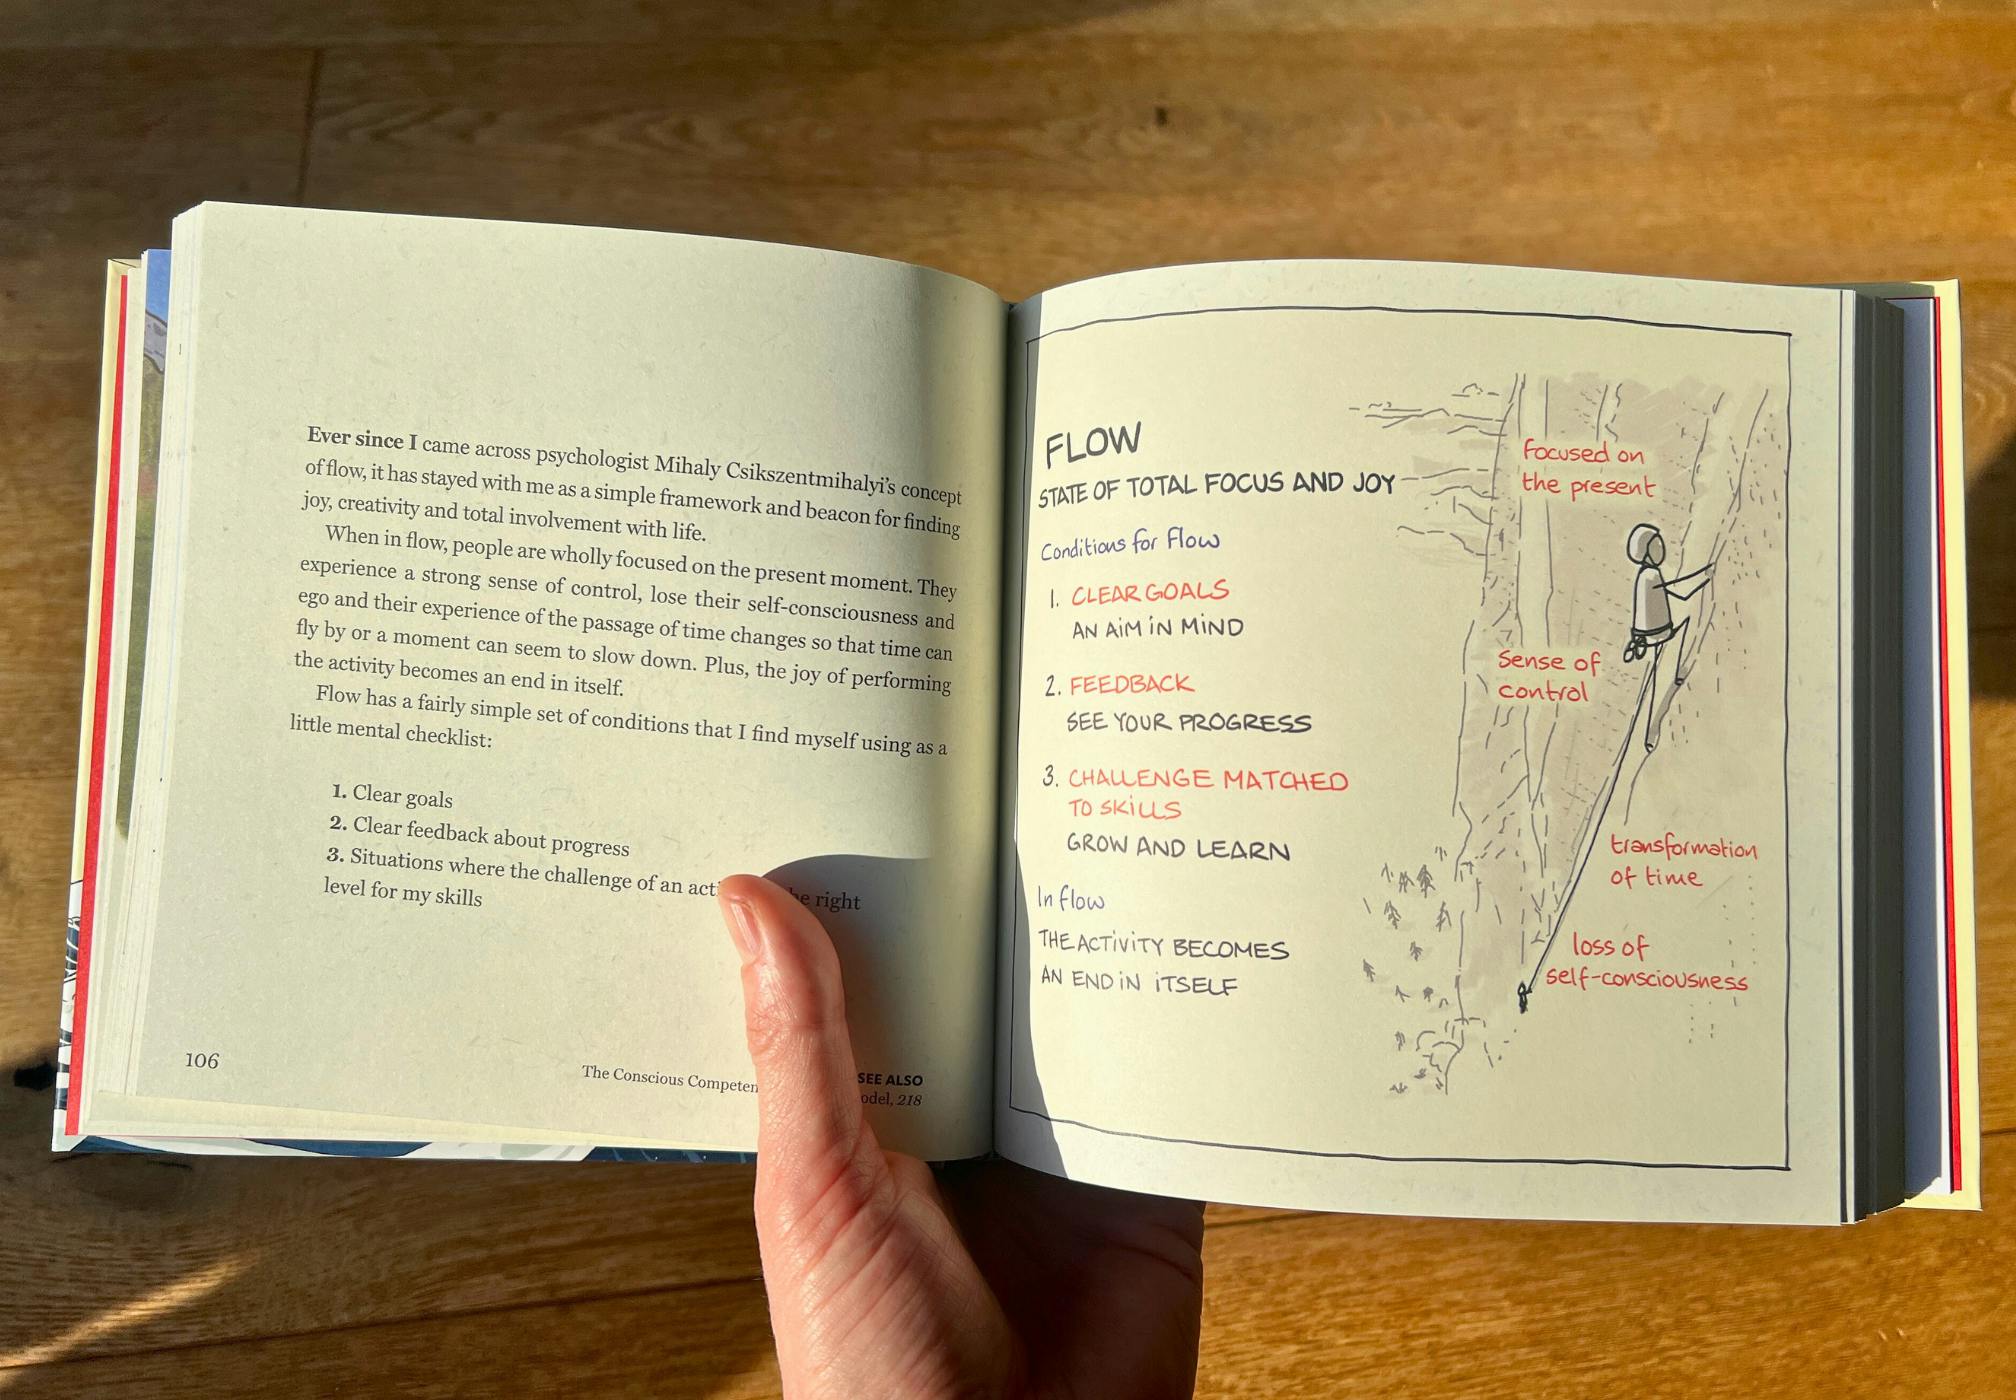 Ever since I came across psychologist Mihaly Csikszentmihalyi's concept
of flow, it has stayed with me as a simple framework and beacon for finding
joy, creativity and total involvement with life.
When in flow, people are wholly focused on the present moment. They
experience a strong sense of control, lose their self-consciousness and
ego and their experience of the passage of time changes so that time can
fly by or a moment can seem to slow down. Plus, the joy of performing
the activity becomes an end in itself.
Flow has a fairly simple set of conditions that I find myself using as a
little mental checklist:
1. Clear goals
2. Clear feedback about progress
3. Situations where the challenge of an right
level for my skills
106
SEE ALSO
The Conscious 218
FLOW
STATE OF TOTAL FOCUS AND JOY
Conditions for flow
1. CLEAR GOALS
AN AIM IN MIND
2. FEEDBACK
SEE YOUR PROGRESS
3. CHALLENGE MATCHED
TO SKILLS
GROW AND LEARN
In flow
THE ACTIVITY BECOMES
AN END IN ITSELF
focused on
the present
sense of
control
transformation
of time
loss of
self-consciousness